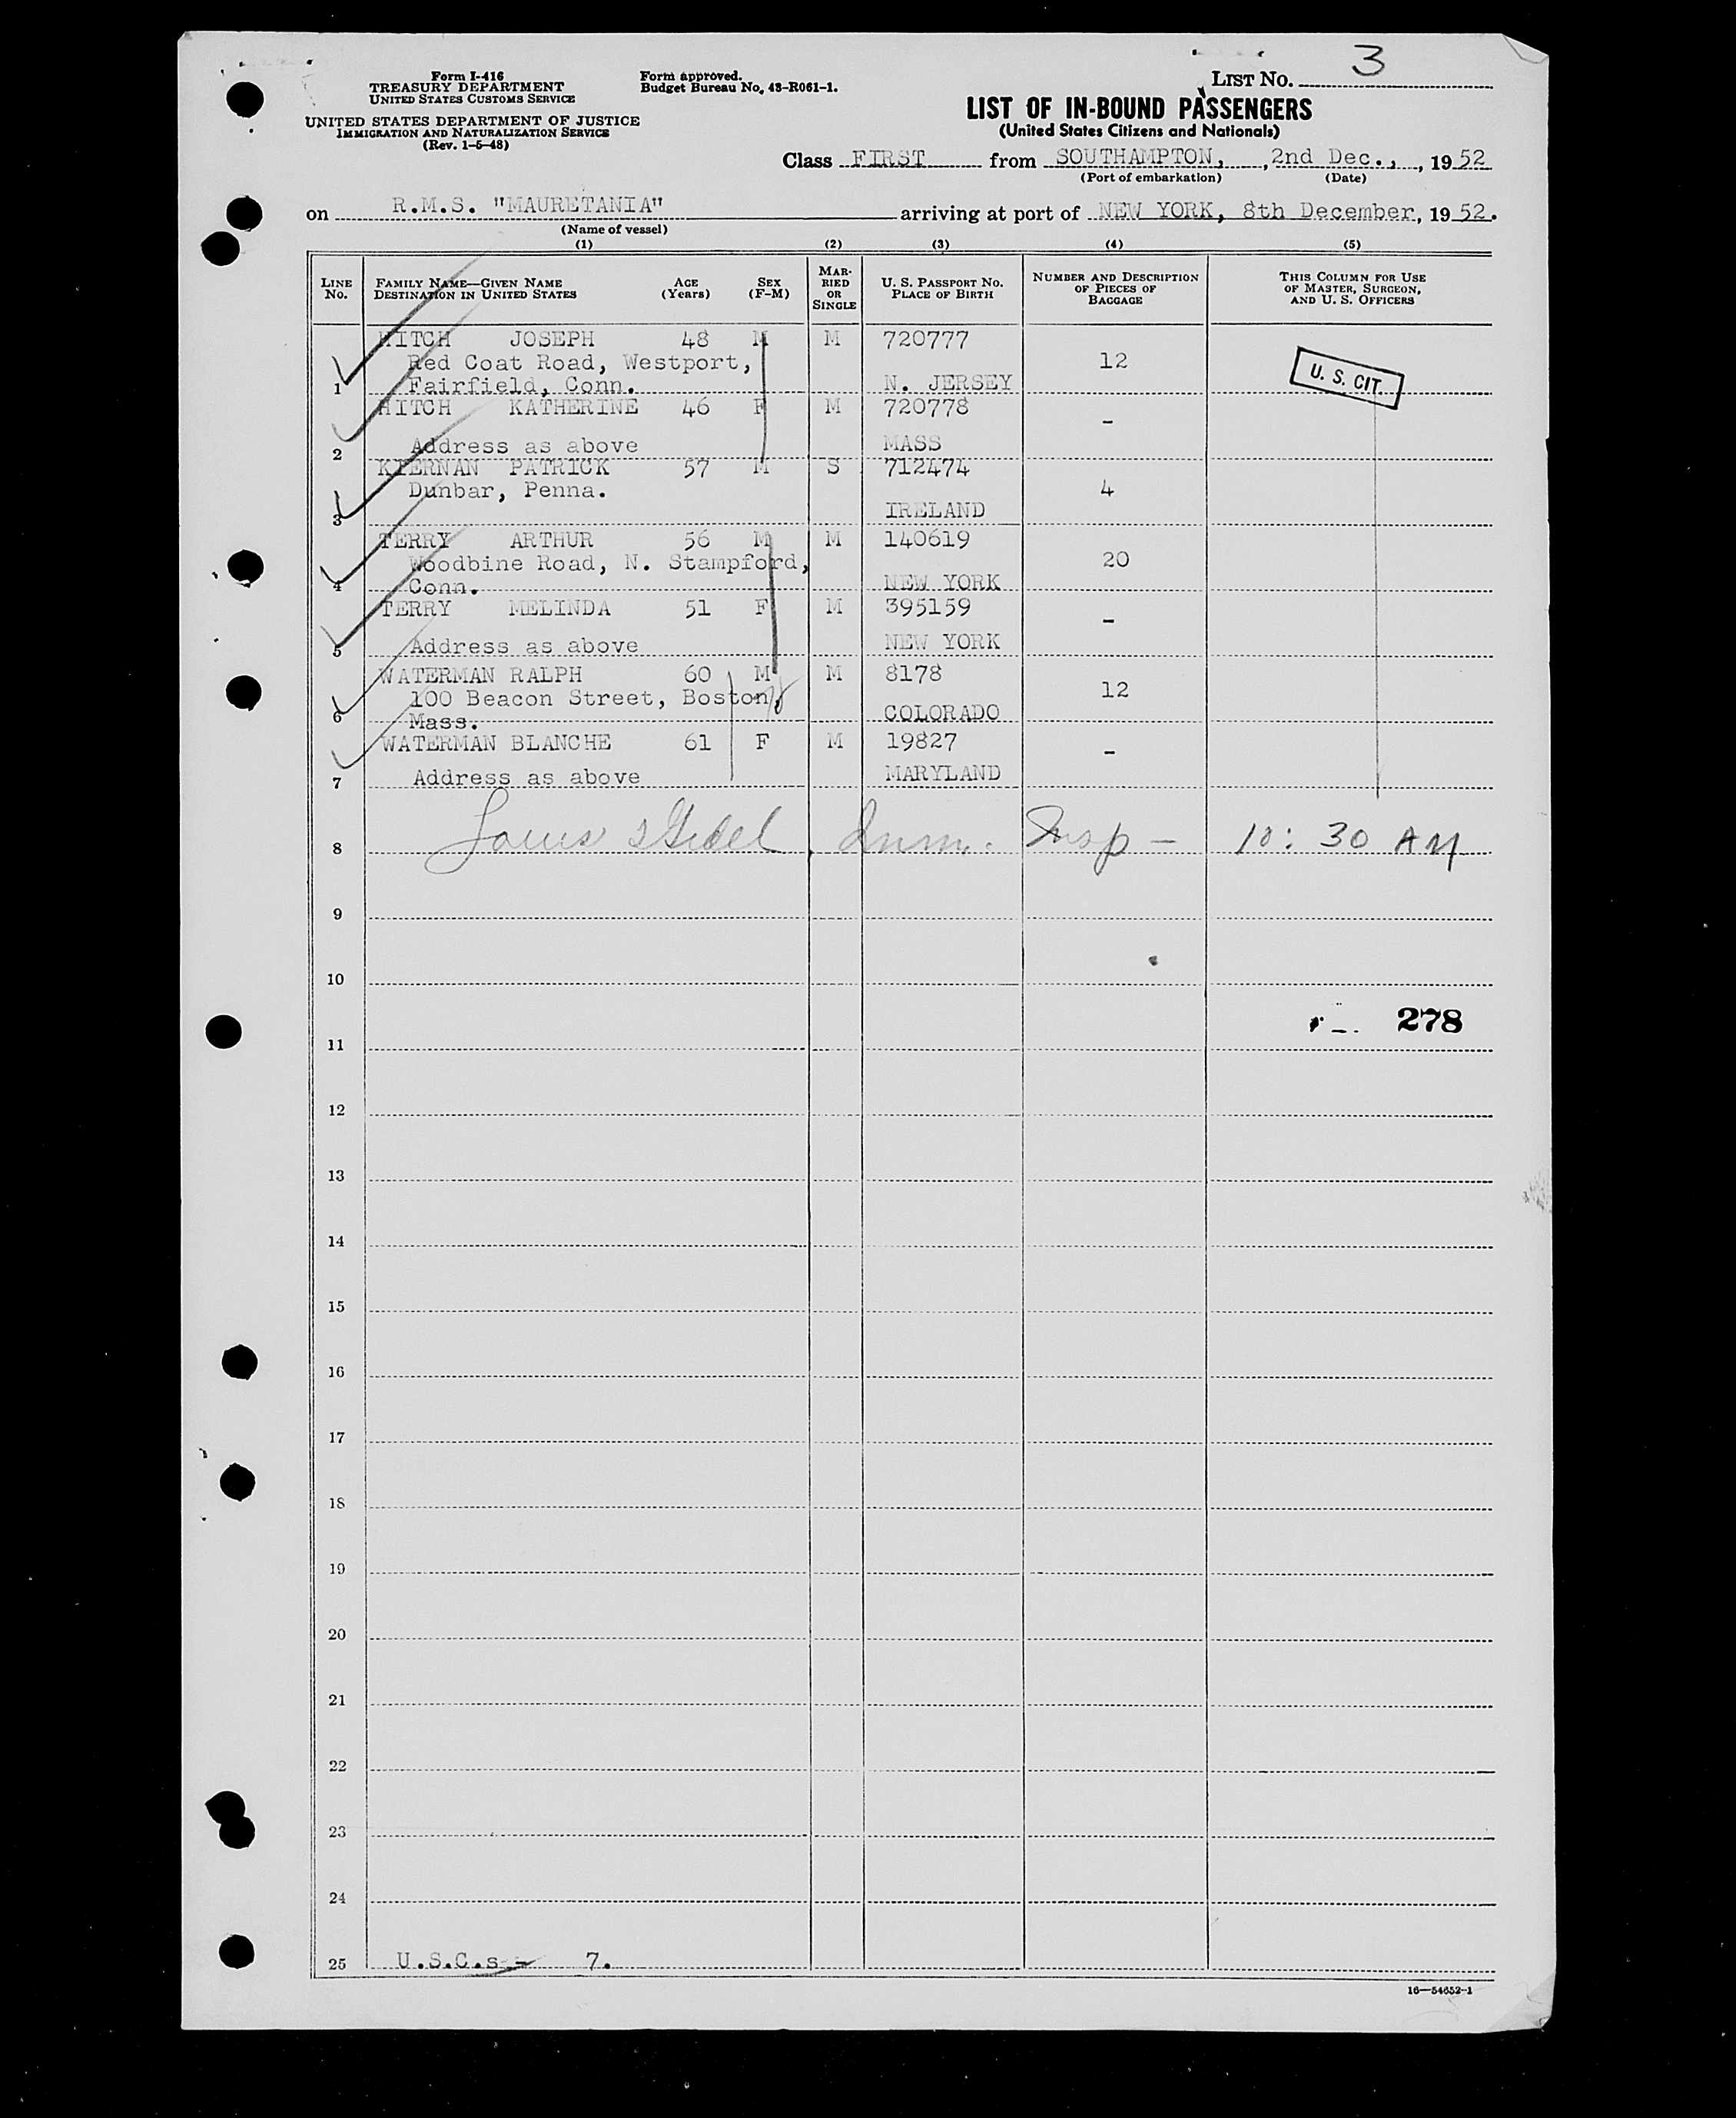 Form I-416
TREASURY DEPARTMENT
UNITED STATES CUSTOMS SERVICE
UNITED STATES DEPARTMENT OF JUSTICE
IMMIGRATION AND NATURALIZATION SERVICE
(Rev. 1-5-48)
Form approved.
Budget Bureau No. 43-R061-1.
LIST NO. 3
LIST OF IN-BOUND PASSENGERS
(United States Citizens and Nationals)
Class FIRST from SOUTHAMPTON, , 2nd Dec., , 19 52
(Port of embarkation) (Date)
on R.M.S. "MAURETANIA" arriving at port of NEW YORK, 8th December, 19 52.
(Name of vessel)
(1) (2) (3) (4) (5)
LINE NO. FAMILY NAME—GIVEN NAME DESTINATION IN UNITED STATES AGE (Years) SEX (F-M) MARRIED OR SINGLE U. S. PASSPORT NO. PLACE OF BIRTH NUMBER AND DESCRIPTION OF PIECES OF BAGGAGE THIS COLUMN FOR USE OF MASTER, SURGEON, AND U. S. OFFICERS
HITCH JOSEPH 48 M M 720777
Red Coat Road, Westport, 12 U. S. CIT.
1 Fairfield, Conn. N. JERSEY
HITCH KATHERINE 46 F M 720778
-
2 Address as above MASS
KIERNAN PATRICK 57 M S 712474
Dunbar, Penna. 4
3 IRELAND
TERRY ARTHUR 56 M M 140619
Woodbine Road, N. Stampford, 20
4 Conn. NEW YORK
TERRY MELINDA 51 F M 395159
-
5 Address as above NEW YORK
WATERMAN RALPH 60 M M 8178
100 Beacon Street, Boston, 12
6 Mass. COLORADO
WATERMAN BLANCHE 61 F M 19827
-
7 Address as above MARYLAND
8 Louis Imm. Insp - 10: 30 AM
9
10
278
11
12
13
14
15
16
17
18
19
20
21
22
23
24
25 U.S.C.s - 7.
16—54652-1